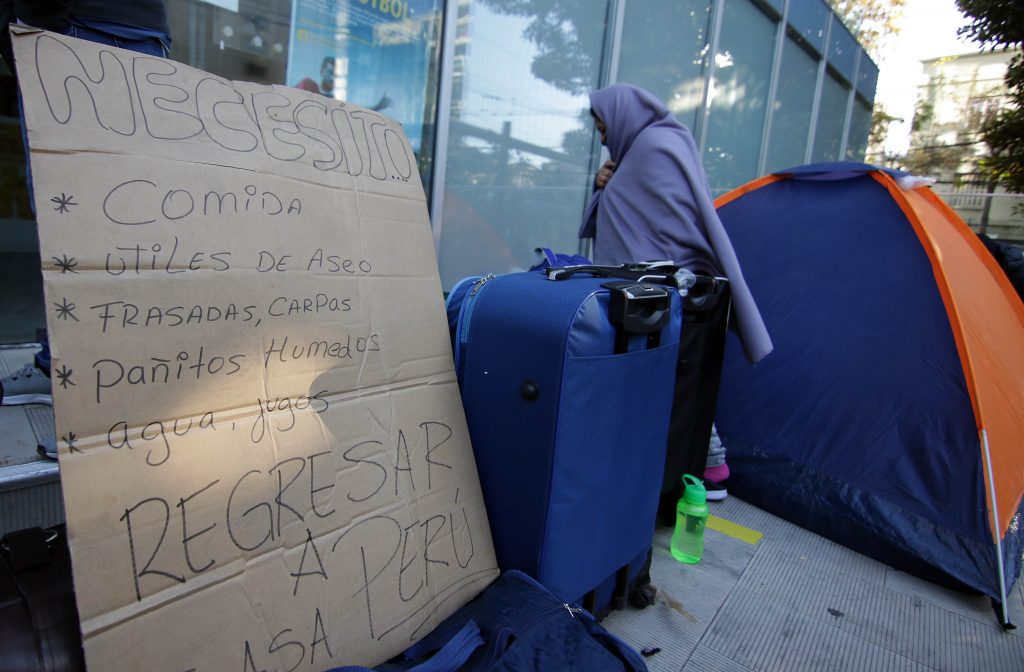 NECESITO...
* COMIDA
* UTiLES DE ASeO
* FRASADAS, CARPAS
* pañitos Humedos
* agua, jugos
REGRESAR,
A PERÚ,